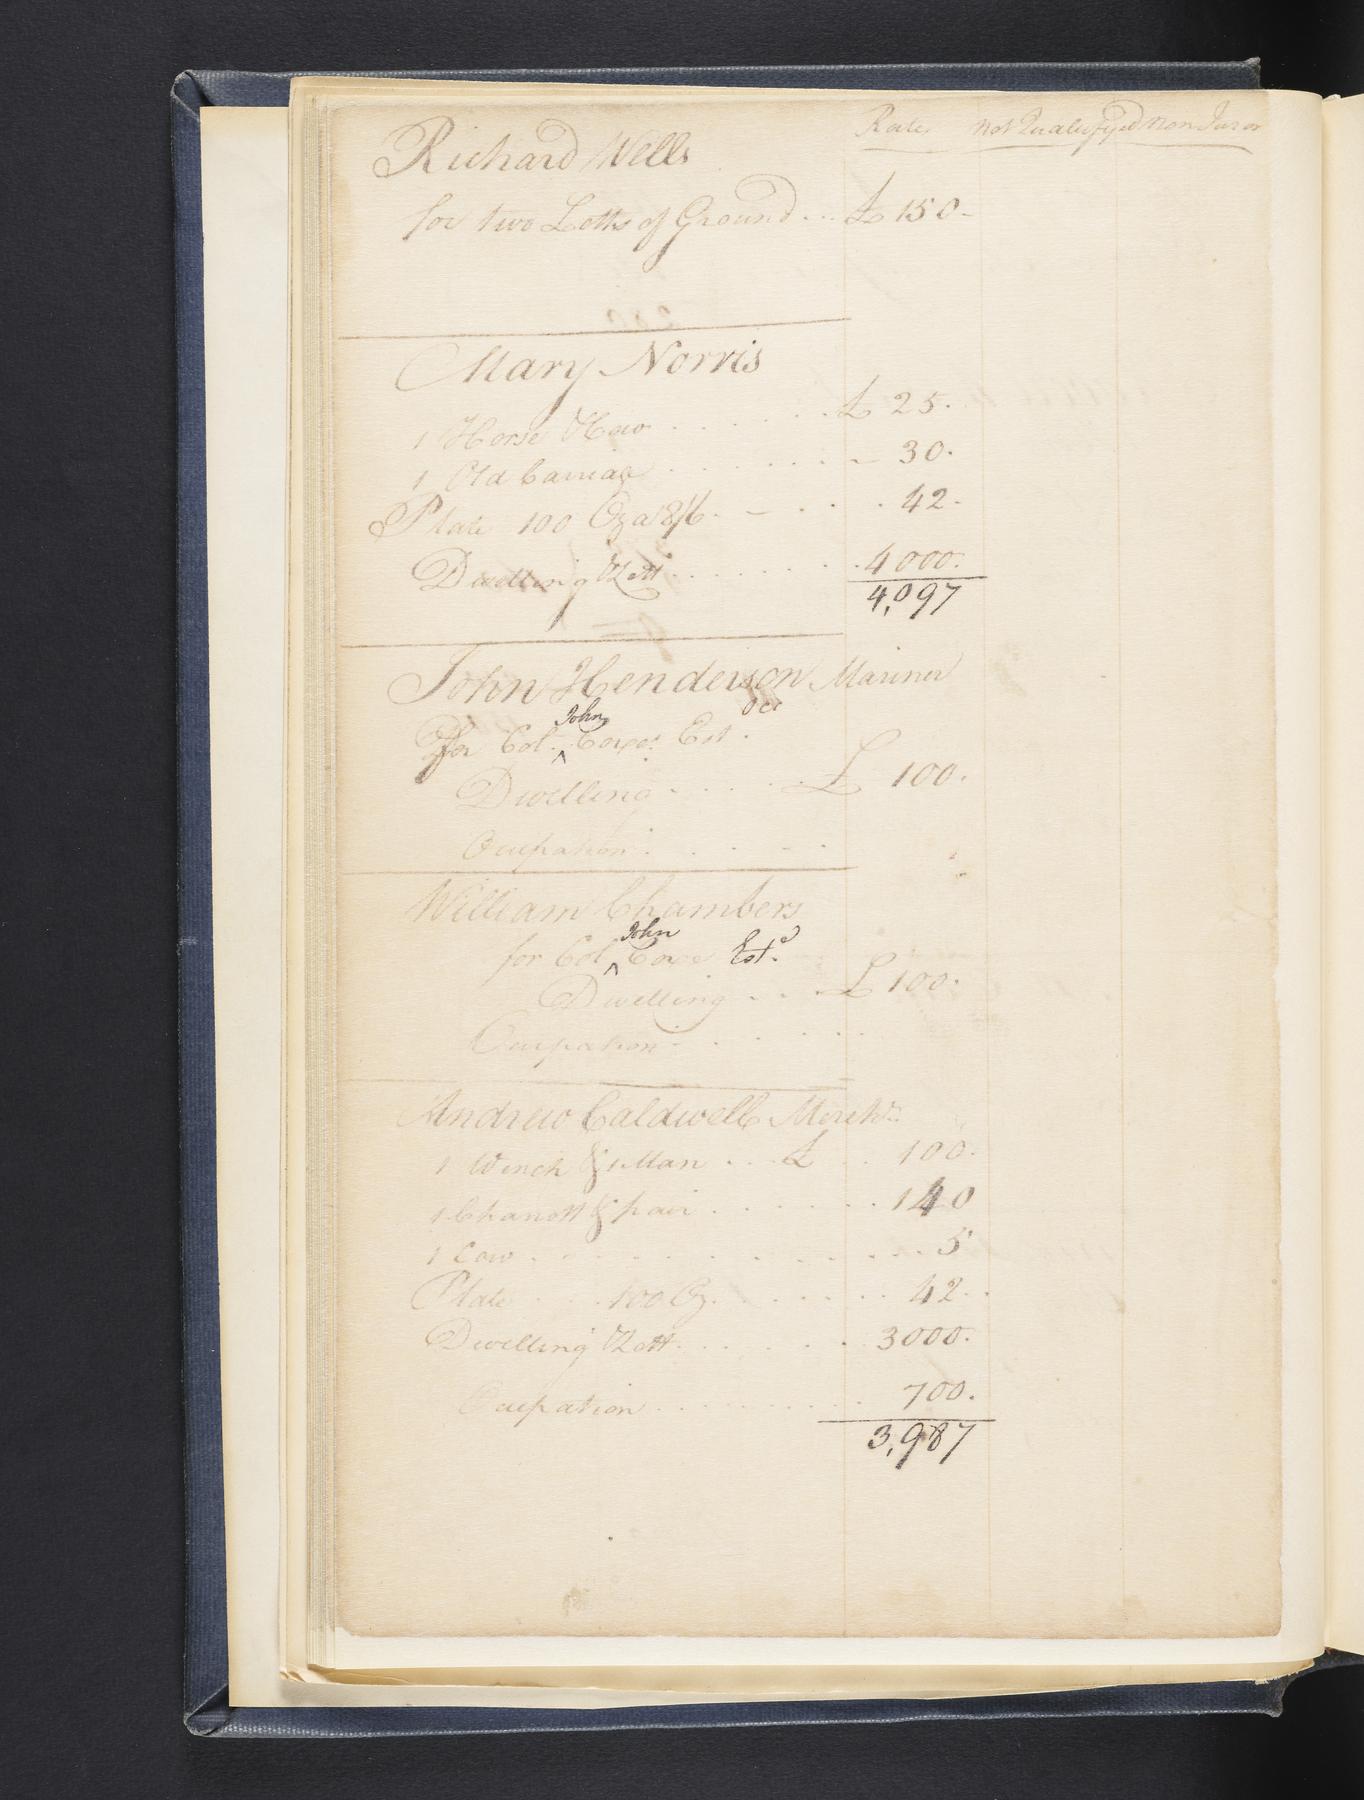 Rates not Qualifyed Non Juror
Richard Wells
for two Lotts of Ground ... £ 150-
Mary Norris
1 Horse & Cow ..... £ 25.
1 Old Carriage ...... - 30.
Plate 100 Oz a 8/6. - ... 42.
Dwelling & Lott ....... 4000.
4,097
John Henderson Mariner
for Col. John Coxe. Est.
Dwelling ..... £ 100.
Ocupation .....
William Chambers
for Col John Coxe Est.d
Dwelling ... £ 100.
Ocupation .....
Andrew Caldwell Mercht.
1 Wench & 1 Man ... £ .. 100.
1 Chariott & pair ...... 140
1 Cow .......... 5
Plate ... 100 Oz. ...... 42..
Dwelling & Lott ...... 3000.
Ocupation ......... 700.
3,987